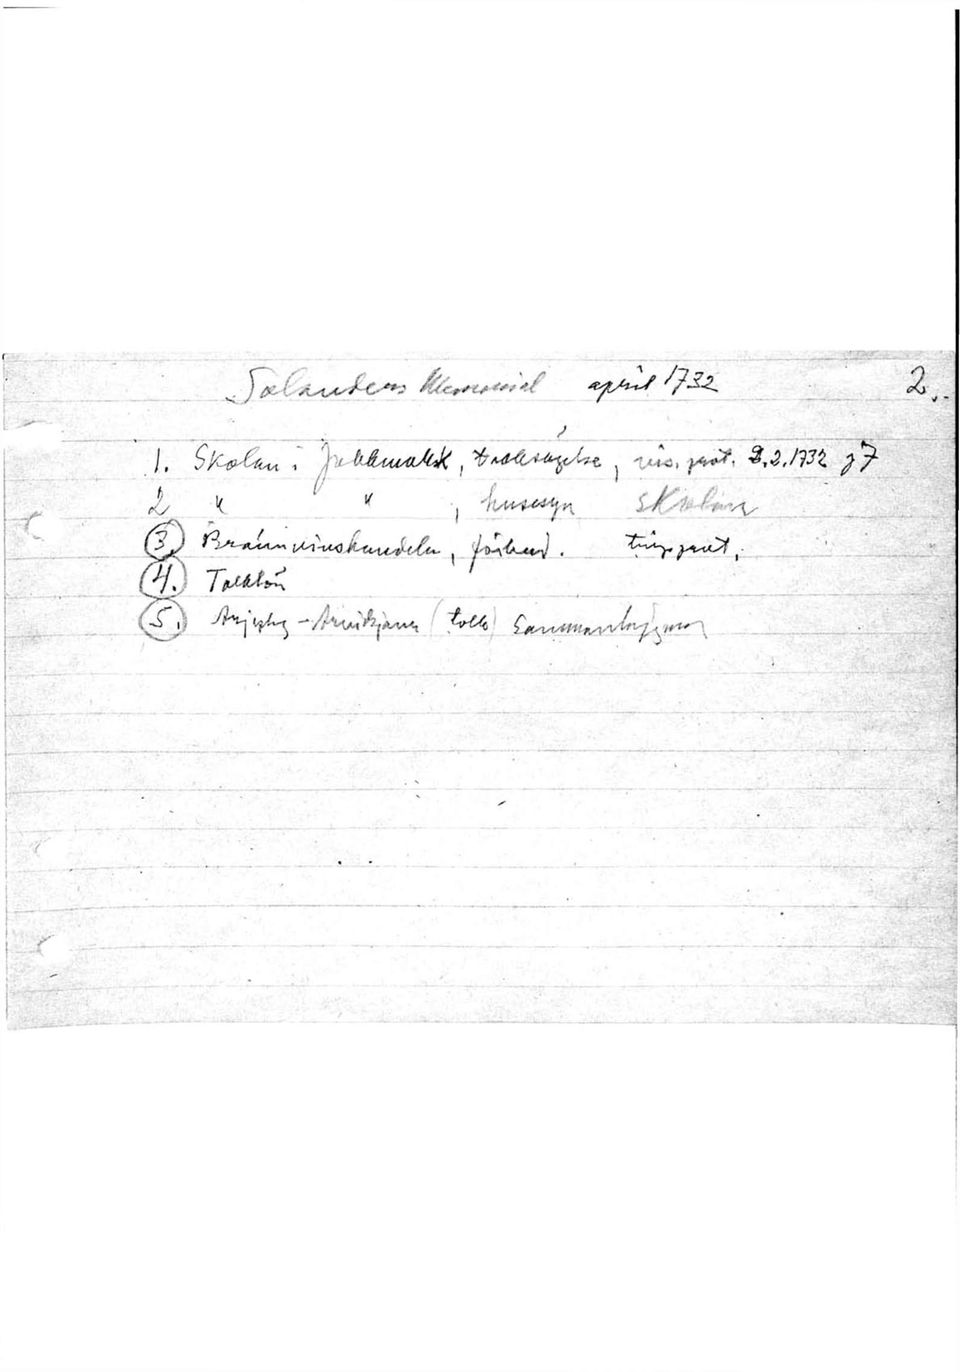 Solanders Memorial april 1732 2.
1. Skolan i Jokkmokk, tacksägelse, vis. prot. 2.2.1732 §7
2 " " , husesyn skolan
3. Brännvinshandeln, förbud. tings prot.
4. Tolklön
5. Arjeplog - Arvidsjaur (tolk) Sammanlysning